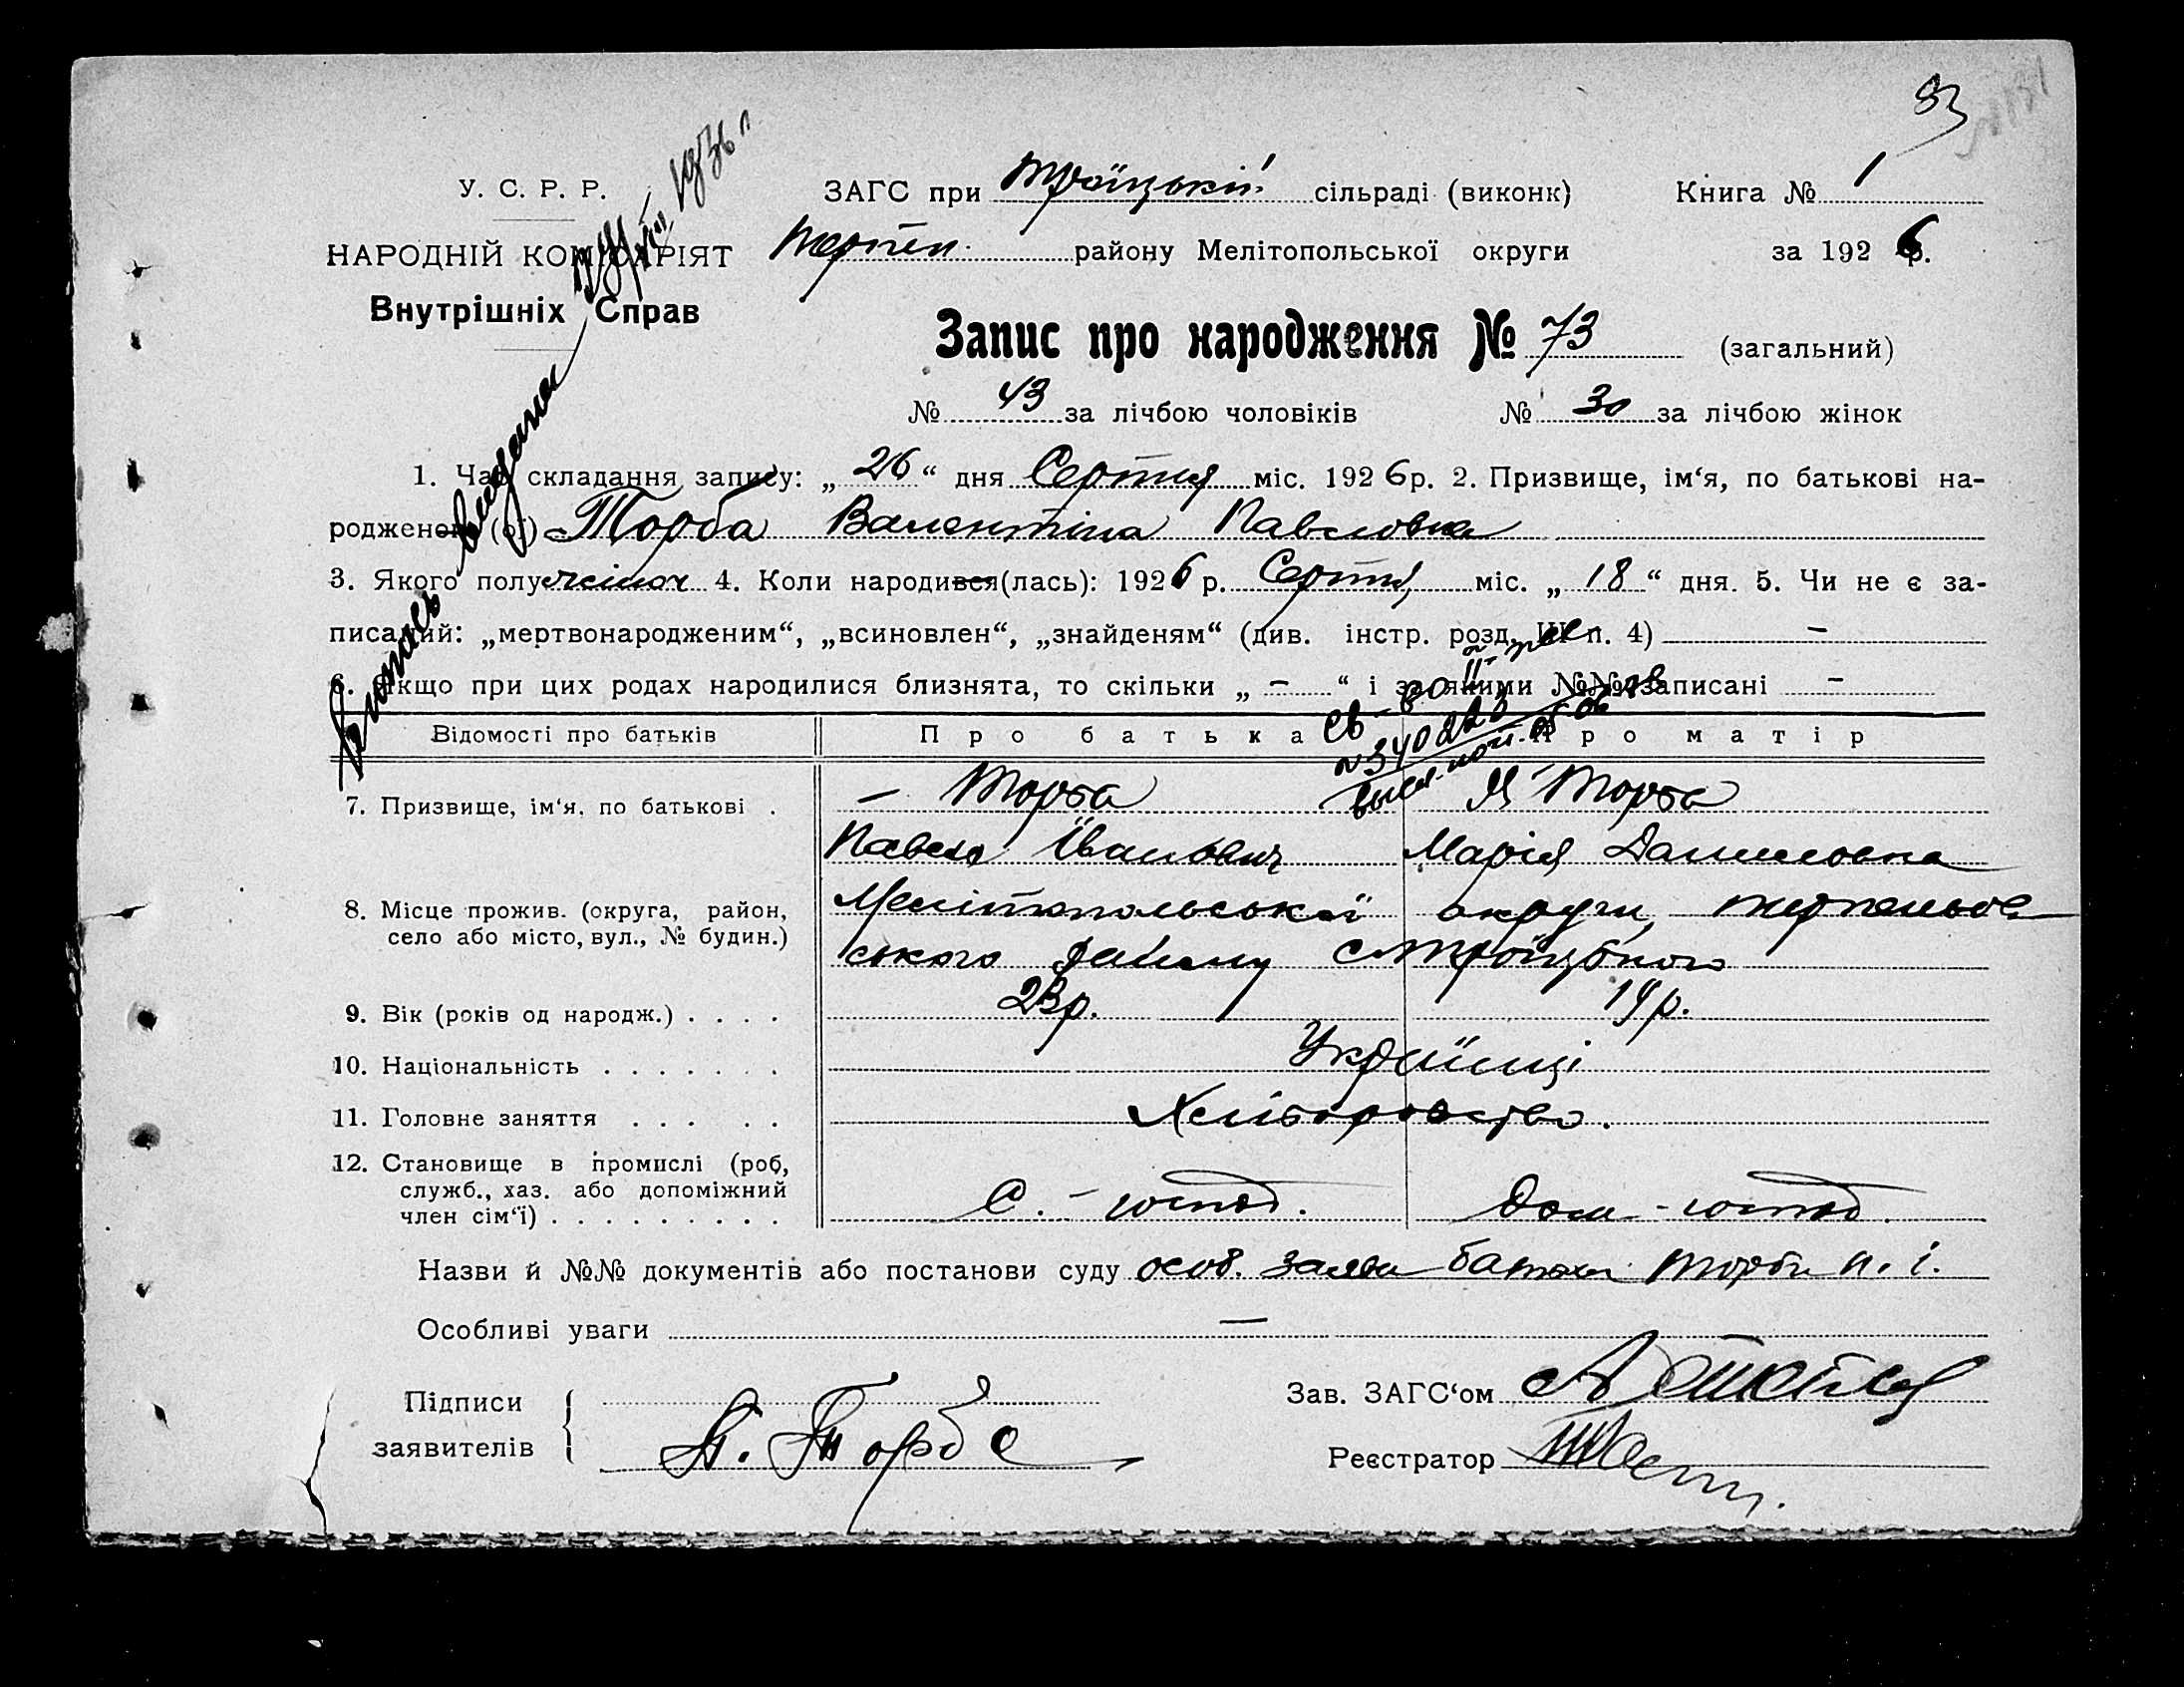 93
У. С. Р. Р. ЗАГС при Троїцькій сільраді (виконк) Книга № 1
НАРОДНІЙ КОМІСАРІЯТ Терпен. району Мелітопольської округи за 1926 р.
Внутрішніх Справ
Запис про народження № 73 (загальний)
№ 43 за лічбою чоловіків № 30 за лічбою жінок
1. Час складання запису: „26“ дня Серпня міс. 1926 р. 2. Призвище, ім‘я, по батькові на-
родженого (ої) Торба Валентіна Павловна
3. Якого полу жіноч 4. Коли народився(лась): 1926 р. Серпня міс. „18“ дня. 5. Чи не є за-
писаний: „мертвонародженим“, „всиновлен“, „знайденям“ (див. інстр. розд. III п. 4) –
6. Якщо при цих родах народилися близнята, то скільки „ – “ і за якими №№ записані –
Випись видана 1936 г
св-во II
Відомості про батьків Про батька Про матір
7. Призвище, ім‘я, по батькові . – Торба Торба
Павло Іванович Марія Даниловна
8. Місце прожив. (округа, район, Мелітопольської округи, терпеньов
село або місто, вул., № будин.) ського району с Троїцького
9. Вік (років од народж.) . . . . 23р. 19р.
10. Національність . . . . . . . Українці
11. Головне заняття . . . . . Хліборобство.
12. Становище в промислі (роб,
служб., хаз. або допоміжний С. - господ. Дом - господ.
член сім‘ї) . . . . . . . . .
Назви й №№ документів або постанови суду особ. заява батька Торби П. І.
Особливі уваги –
Підписи Зав. ЗАГС‘ом
заявителів П. Торба Реєстратор